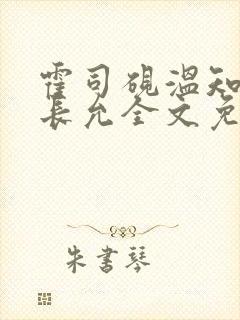 霍司砚温知
长允全文免
朱書琴